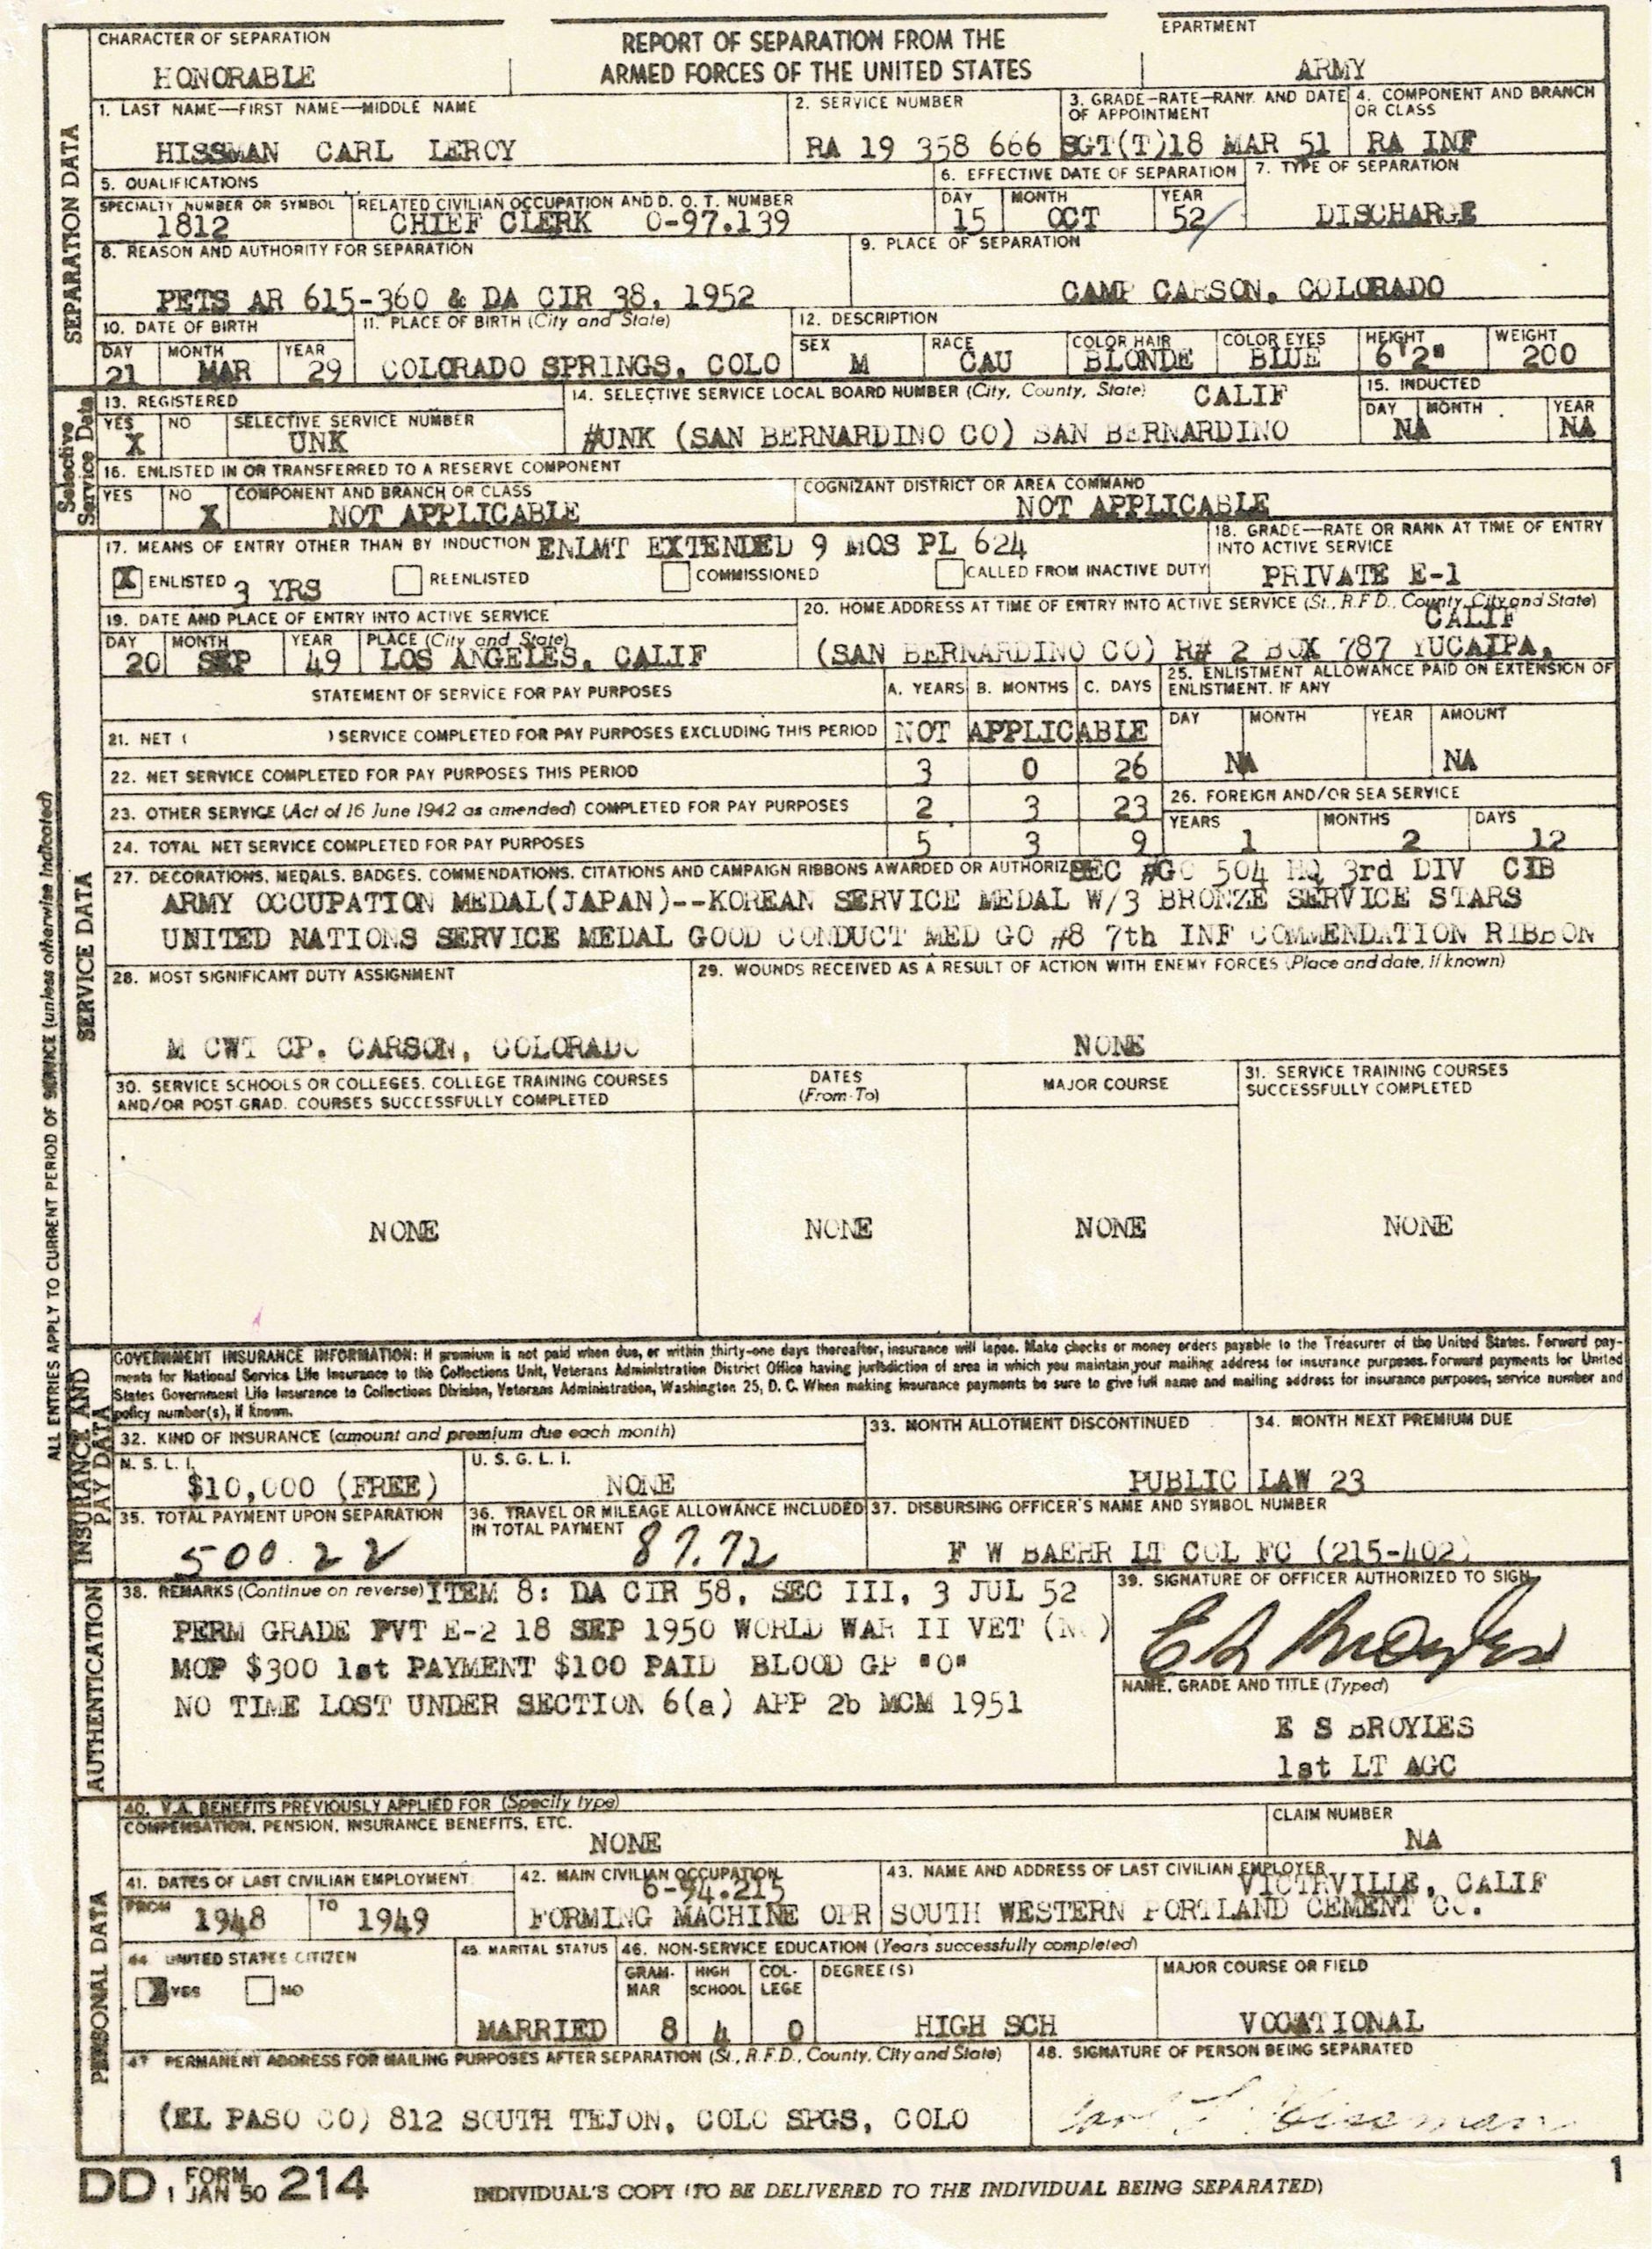 CHARACTER OF SEPARATION
HONORABLE
REPORT OF SEPARATION FROM THE
ARMED FORCES OF THE UNITED STATES
EPARTMENT
ARMY
SEPARATION DATA
1. LAST NAME—FIRST NAME—MIDDLE NAME
HISSMAN CARL LEROY
2. SERVICE NUMBER
RA 19 358 666
3. GRADE—RATE—RANK AND DATE
OF APPOINTMENT
SGT(T)18 MAR 51
4. COMPONENT AND BRANCH
OR CLASS
RA INF
5. QUALIFICATIONS
SPECIALTY NUMBER OR SYMBOL
1812
RELATED CIVILIAN OCCUPATION AND D. O. T. NUMBER
CHIEF CLERK 0-97.139
6. EFFECTIVE DATE OF SEPARATION
DAY MONTH YEAR
15 OCT 52
7. TYPE OF SEPARATION
DISCHARGE
8. REASON AND AUTHORITY FOR SEPARATION
PETS AR 615-360 & DA CIR 38, 1952
9. PLACE OF SEPARATION
CAMP CARSON, COLORADO
10. DATE OF BIRTH
DAY MONTH YEAR
21 MAR 29
11. PLACE OF BIRTH (City and State)
COLORADO SPRINGS, COLO
12. DESCRIPTION
SEX RACE COLOR HAIR COLOR EYES HEIGHT WEIGHT
M CAU BLONDE BLUE 6'2" 200
Selective
Service Data
13. REGISTERED
YES NO SELECTIVE SERVICE NUMBER
X UNK
14. SELECTIVE SERVICE LOCAL BOARD NUMBER (City, County, State) CALIF
#UNK (SAN BERNARDINO CO) SAN BERNARDINO
15. INDUCTED
DAY MONTH YEAR
NA NA
16. ENLISTED IN OR TRANSFERRED TO A RESERVE COMPONENT
YES NO COMPONENT AND BRANCH OR CLASS
X NOT APPLICABLE
COGNIZANT DISTRICT OR AREA COMMAND
NOT APPLICABLE
SERVICE DATA
17. MEANS OF ENTRY OTHER THAN BY INDUCTION ENLMT EXTENDED 9 MOS PL 624
X ENLISTED 3 YRS REENLISTED COMMISSIONED CALLED FROM INACTIVE DUTY
18. GRADE—RATE OR RANK AT TIME OF ENTRY
INTO ACTIVE SERVICE
PRIVATE E-1
19. DATE AND PLACE OF ENTRY INTO ACTIVE SERVICE
DAY MONTH YEAR PLACE (City and State)
20 SEP 49 LOS ANGELES, CALIF
20. HOME ADDRESS AT TIME OF ENTRY INTO ACTIVE SERVICE (St., R.F.D., County, City and State)
CALIF
(SAN BERNARDINO CO) R# 2 BOX 787 YUCAIPA,
STATEMENT OF SERVICE FOR PAY PURPOSES
A. YEARS B. MONTHS C. DAYS
21. NET ( ) SERVICE COMPLETED FOR PAY PURPOSES EXCLUDING THIS PERIOD NOT APPLICABLE
22. NET SERVICE COMPLETED FOR PAY PURPOSES THIS PERIOD 3 0 26
23. OTHER SERVICE (Act of 16 June 1942 as amended) COMPLETED FOR PAY PURPOSES 2 3 23
24. TOTAL NET SERVICE COMPLETED FOR PAY PURPOSES 5 3 9
25. ENLISTMENT ALLOWANCE PAID ON EXTENSION OF
ENLISTMENT, IF ANY
DAY MONTH YEAR AMOUNT
NA NA
26. FOREIGN AND/OR SEA SERVICE
YEARS MONTHS DAYS
1 2 12
27. DECORATIONS, MEDALS, BADGES, COMMENDATIONS, CITATIONS AND CAMPAIGN RIBBONS AWARDED OR AUTHORIZ SEC #GO 504 HQ 3rd DIV CIB
ARMY OCCUPATION MEDAL(JAPAN)--KOREAN SERVICE MEDAL W/3 BRONZE SERVICE STARS
UNITED NATIONS SERVICE MEDAL GOOD CONDUCT MED GO #8 7th INF COMMENDATION RIBBON
28. MOST SIGNIFICANT DUTY ASSIGNMENT
M CWT CP. CARSON, COLORADO
29. WOUNDS RECEIVED AS A RESULT OF ACTION WITH ENEMY FORCES (Place and date, if known)
NONE
30. SERVICE SCHOOLS OR COLLEGES, COLLEGE TRAINING COURSES
AND/OR POST GRAD. COURSES SUCCESSFULLY COMPLETED
DATES
(From-To)
MAJOR COURSE
31. SERVICE TRAINING COURSES
SUCCESSFULLY COMPLETED
NONE NONE NONE NONE
ALL ENTRIES APPLY TO CURRENT PERIOD OF SERVICE (unless otherwise indicated)
INSURANCE AND
PAY DATA
GOVERNMENT INSURANCE INFORMATION: If premium is not paid when due, or within thirty-one days thereafter, insurance will lapse. Make checks or money orders payable to the Treasurer of the United States. Forward pay-
ments for National Service Life Insurance to the Collections Unit, Veterans Administration District Office having jurisdiction of area in which you maintain your mailing address for insurance purposes. Forward payments for United
States Government Life Insurance to Collections Division, Veterans Administration, Washington 25, D. C. When making insurance payments be sure to give full name and mailing address for insurance purposes, service number and
policy number(s), if known.
32. KIND OF INSURANCE (amount and premium due each month)
N. S. L. I.
$10,000 (FREE)
U. S. G. L. I.
NONE
33. MONTH ALLOTMENT DISCONTINUED
34. MONTH NEXT PREMIUM DUE
PUBLIC LAW 23
35. TOTAL PAYMENT UPON SEPARATION
500.22
36. TRAVEL OR MILEAGE ALLOWANCE INCLUDED
IN TOTAL PAYMENT
87.72
37. DISBURSING OFFICER'S NAME AND SYMBOL NUMBER
F W BAEHR LT COL FC (215-402)
AUTHENTICATION
38. REMARKS (Continue on reverse) ITEM 8: DA CIR 58, SEC III, 3 JUL 52
PERM GRADE PVT E-2 18 SEP 1950 WORLD WAR II VET (NO)
MOP $300 1st PAYMENT $100 PAID BLOOD GP "O"
NO TIME LOST UNDER SECTION 6(a) APP 2b MCM 1951
39. SIGNATURE OF OFFICER AUTHORIZED TO SIGN
NAME, GRADE AND TITLE (Typed)
E S BROYLES
1st LT AGC
PERSONAL DATA
40. V.A. BENEFITS PREVIOUSLY APPLIED FOR (Specify type)
COMPENSATION, PENSION, INSURANCE BENEFITS, ETC.
NONE
CLAIM NUMBER
NA
41. DATES OF LAST CIVILIAN EMPLOYMENT
FROM 1948 TO 1949
42. MAIN CIVILIAN OCCUPATION
6-94.215
FORMING MACHINE OPR
43. NAME AND ADDRESS OF LAST CIVILIAN EMPLOYER
VICTRVILLE, CALIF
SOUTH WESTERN PORTLAND CEMENT CO.
44. UNITED STATES CITIZEN
X YES NO
45. MARITAL STATUS
MARRIED
46. NON-SERVICE EDUCATION (Years successfully completed)
GRAM-
MAR
8
HIGH
SCHOOL
4
COL-
LEGE
0
DEGREE(S)
HIGH SCH
MAJOR COURSE OR FIELD
VOCATIONAL
47. PERMANENT ADDRESS FOR MAILING PURPOSES AFTER SEPARATION (St., R.F.D., County, City and State)
(EL PASO CO) 812 SOUTH TEJON, COLO SPGS, COLO
48. SIGNATURE OF PERSON BEING SEPARATED
DD FORM 214
1 JAN 50
INDIVIDUAL'S COPY (TO BE DELIVERED TO THE INDIVIDUAL BEING SEPARATED)
1